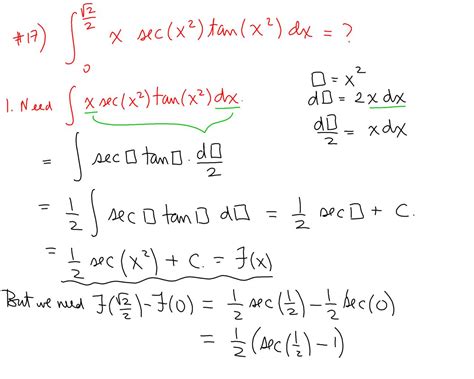 #17) ∫₀^(√2/2) x sec(x²) tan(x²) dx = ?
1. Need ∫ x sec(x²) tan(x²) dx.
□ = x²
d□ = 2x dx
d□/2 = x dx
= ∫ sec □ tan □ · d□/2
= 1/2 ∫ sec □ tan □ d□ = 1/2 sec □ + C.
= 1/2 sec(x²) + C. = F(x)
But we need F(√2/2) - F(0) = 1/2 sec(1/2) - 1/2 sec(0)
= 1/2 (sec(1/2) - 1)